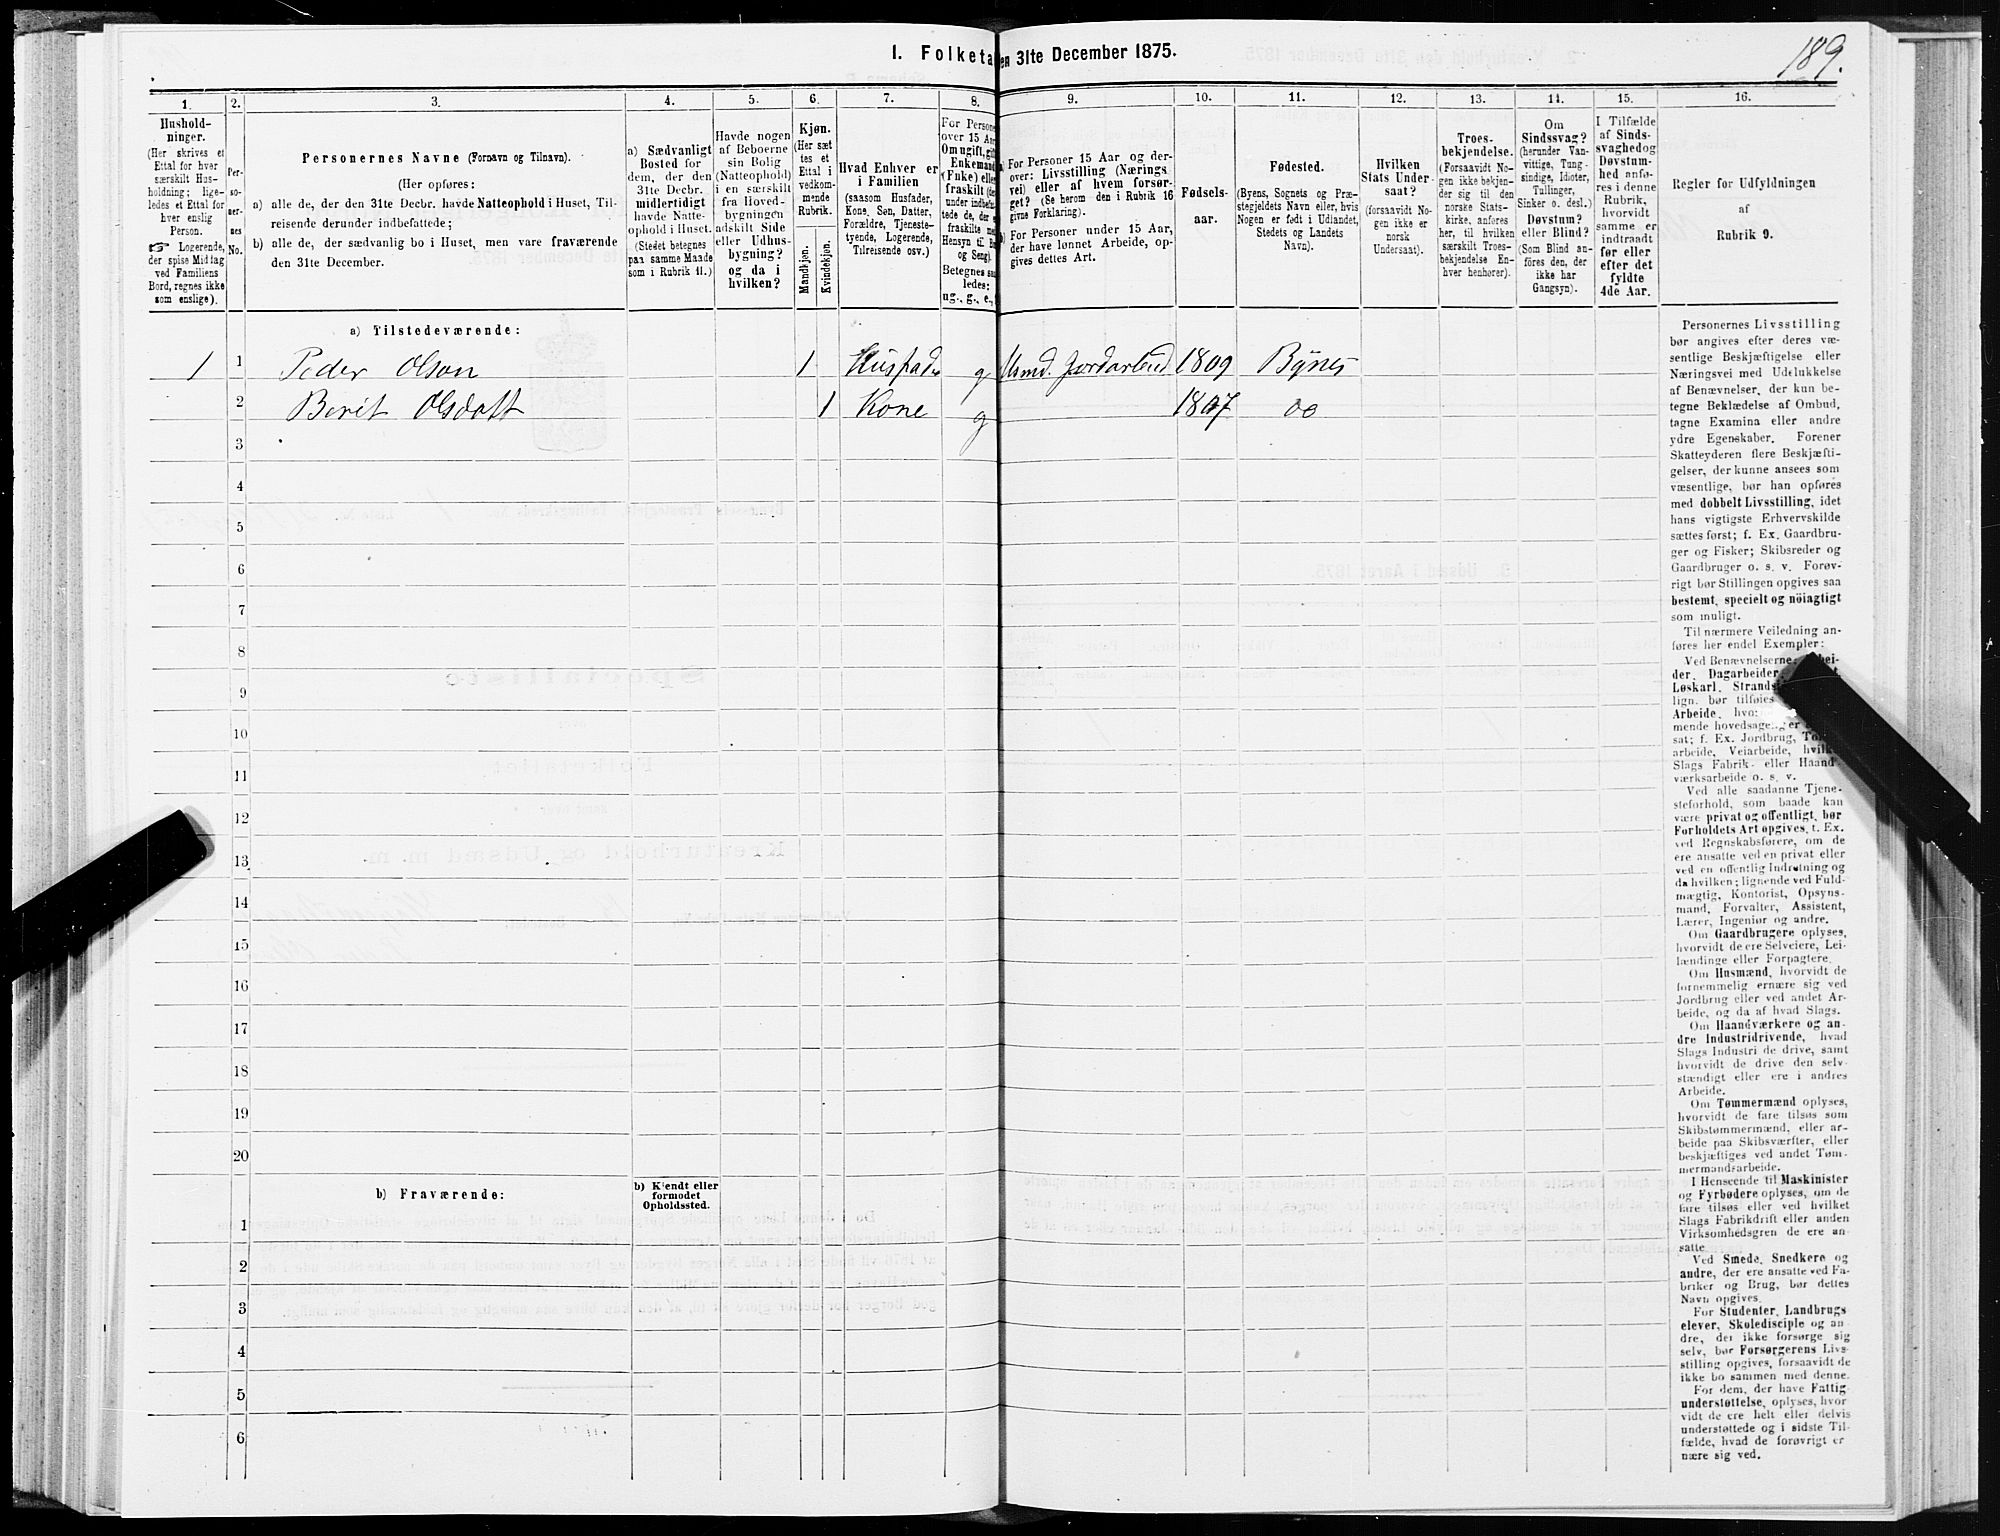 1. Folketa en 31te December 1875.
189.
1.
Hushold-
ninger.
(Her skrives et
Ettal for hver
særskilt Hus-
holdning; lige-
ledes et Ettal for
hver enslig
Person.
☞ Logerende,
der spise Middag
ved Familiens
Bord, regnes ikke
som enslige).
2.
Per-
so-
ner-
nes
No.
3.
Personernes Navne (Fornavn og Tilnavn).
(Her opføres:
a) alle de, der den 31te Decbr. havde Natteophold i Huset, Til-
reisende derunder indbefattede;
b) alle de, der sædvanlig bo i Huset, men vare fraværende
den 31te December.
4.
a) Sædvanligt
Bosted for
dem, der den
31te Decbr.
midlertidigt
havde Natte-
ophold i Huset.
(Stedet betegnes
paa samme Maade
som i Rubrik 11.)
5.
Havde nogen
af Beboerne
sin Bolig
(Natteophold)
i en særskilt
fra Hoved-
bygningen
adskilt Side
eller Udhus-
bygning?
og da i
hvilken?
6.
Kjøn.
(Her sæt
tes et
Ettal i
vedkom-
mende
Rubrik.
Mandkjøn.
Kvindekjøn.
7.
Hvad Enhver er
i Familien
(saasom Husfader,
Kone, Søn, Datter,
Forældre, Tjeneste-
tyende, Logerende,
Tilreisende osv.)
8.
For Persone
over 15 Aar
Om ugift, gif
Enkemand
(Enke) elle
fraskilt (de
under indbefat
tede de, der e
fraskilte me
Hensyn til Bo
og Seng).
Betegnes saa
ledes:
ug., g., e.,
9.
a) For Personer 15 Aar og der-
over: Livsstilling (Nærings
vei) eller af hvem forsør-
get? (Se herom den i Rubrik 16
givne Forklaring).
b) For Personer under 15 Aar,
der have lønnet Arbeide, op-
gives dettes Art.
10.
Fødsels-
aar.
11.
Fødested.
(Byens, Sognets og Præ-
stegjeldets Navn eller, hvis
Nogen er født i Udlandet,
Stedets og Landets
Navn).
12.
Hvilken
Stats Under-
saat?
(forsaavidt No-
gen ikke er
norsk
Undersaat).
13.
Troes-
bekjendelse.
(Forsaavidt No-
gen ikke bekjen-
der sig til den
norske Stats-
kirke, anføres
her, til hvilken
særskilt Troes-
bekjendelse En-
hver henhører).
14.
Om
Sindssvag?
(herunder Van-
vittige, Tung-
sindige, Idioter,
Tullinger,
Sinker o. desl.)
Døvstum?
eller Blind?
(Som Blind an-
føres den, der
ikke har
Gangsyn).
15.
I Tilfælde
af Sinds-
svaghed og
Døvstum-
hed anfø-
res i denne
Rubrik,
hvorvidt
samme er
indtraadt
før eller
efter det
fyldte
4de Aar.
16.
Regler for Udfyldningen
af
Rubrik 9.
a) Tilstedeværende:
1 1 Peder Olsen 1 Husfader g Husmd. Jordarbeid 1809 Bynes
2 Berit Olsdatt 1 Kone g 1807 do
3
4
5
6
7
8
9
10
11
12
13
14
15
16
17
18
19
20
b) Fraværende:
b) Kjendt eller
formodet
Opholdssted.
1
2
3
4
5
6
Personernes Livsstilling
bør angives efter deres væ-
sentlige Beskjæftigelse eller
Næringsvei med Udelukkelse
af Benævnelser, der kun be-
tegne Beklædelse af Ombud,
tagne Examina eller andre
ydre Egenskaber. Forener
Skatteyderen flere Beskjæfti-
gelser, der kunne ansees som
væsentlige, bør han opføres
med dobbelt Livsstilling, idet
hans vigtigste Erhvervskilde
sættes først; f. Ex. Gaardbru-
ger og Fisker; Skibsreder og
Gaardbruger o. s. v. Forøv-
rigt bør Stillingen opgives saa
bestemt, specielt og nöiagtigt
som muligt.
Til nærmere Veiledning an-
føres her endel Exempler:
Ved Benævnelserne: Arbei-
der, Dagarbeider,
Løskarl, Strands
lign. bør tilføies
Arbeide, hvo
mende hovedsagenger
sat; f. Ex. Jordbrug,
arbeide, Veiarbeide, hvilke
Slags Fabrik- eller Haand-
værksarbeide o. s. v.
Ved alle saadanne Tjene-
steforhold, som baade kan
være privat og offentligt, bør
Forholdets Art opgives, t. Ex.
ved Regnskabsførere, om de
ere ansatte ved en privat eller
ved en offentlig Indretning og
da hvilken; lignende ved Fuld-
mægtig, Kontorist, Opsyns-
mand, Forvalter, Assistent,
Lærer, Ingeniør og andre.
Om Gaardbrugere oplyses,
hvorvidt de ere Selveiere, Lei-
lændinge eller Forpagtere.
Om Husmænd, hvorvidt de
fornemmelig ernære sig ved
Jordbrug eller ved andet Ar-
beide, og da af hvad Slags.
Om Haandværkere og an-
dre Industridrivende, hvad
Slags Industri de drive, samt
hvorvidt de drive den selv-
stændigt eller ere i andres
Arbeide.
Om Tømmermænd oplyses,
hvorvidt de fare tilsøs som
Skibstømmermænd, eller ar-
beide paa Skibsværfter, eller
beskjæftiges ved andet Tøm-
mermandsarbeide.
I Henseende til Maskinister
og Fyrbødere oplyses, om de
fare tilsøs eller ved hvilket
Slags Fabrikdrift eller anden
Virksomhedsgren de ere an-
satte.
Ved Smede, Snedkere og
andre, der ere ansatte ved Fa-
briker og Brug, bør dettes
Navn opgives.
For Studenter, Landbrugs
elever, Skoledisciple og an-
dre, der ikke forsørge sig
selv, bør Forsørgerens Livs-
stilling opgives, forsaavidt de
ikke bo sammen med denne.
For dem, der have Fattig-
understøttelse, oplyses, hvor
vidt de ere helt eller delvis
understøttede og i sidste Til-
fælde, hvad de forøvrigt er
nære sig ved.